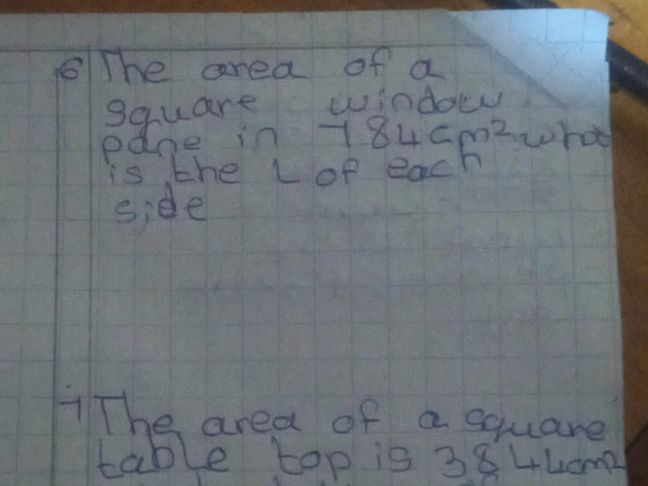 6 The area of a
square window
pane in 784cm² what
is the L of each
side
7 The area of a square
table top is 3844cm²